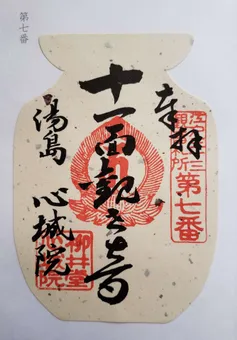 第七番
奉拝
第七番
十一面観世音
湯島 心城院
柳井堂
心城院